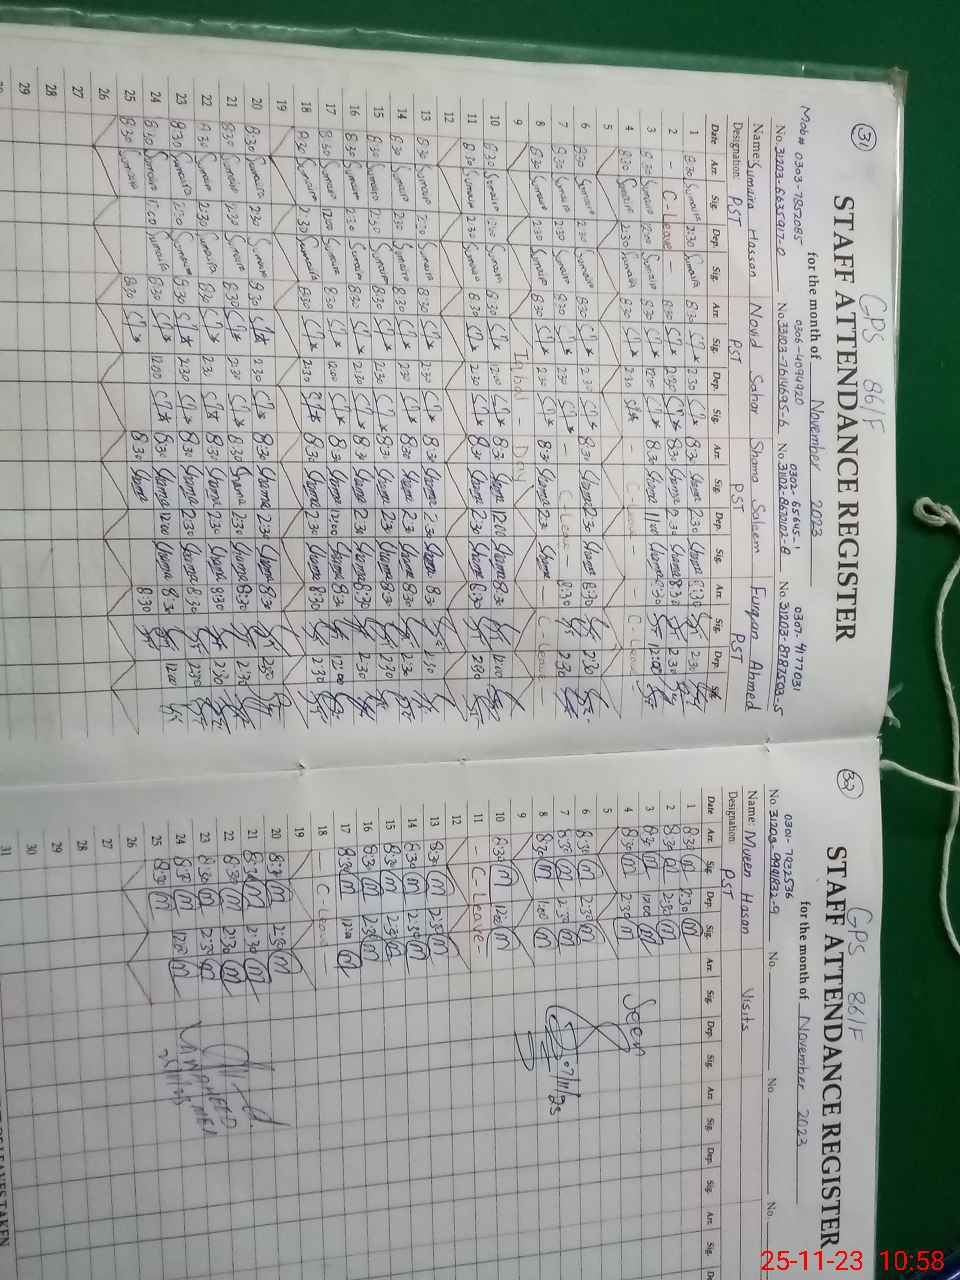 (31)
GPS 86/F
STAFF ATTENDANCE REGISTER
for the month of November 2023
Mob# 0303-7852085 0306-4094920 0302-65645-1 0307-4177031
No. 31203-6635917-0 No. 33103-7614695-6 No. 31102-8632102-8 No. 31203-8787503-5
Name Sumaira Hassan Novid Sahar Shama Saleem Furqan Ahmed
Designation: PST PST PST PST
Date Arr. Sig. Dep. Sig. Arr. Sig. Dep. Sig. Arr. Sig. Dep. Sig. Arr. Sig. Dep. Sig.
1 8:30 Sumaira 2:30 Sumaira 8:30 2:30 8:30 Shama 2:30 Shama 8:30 2:30
2 - C-Leave - 8:30 2:30 8:30 Shama 2:30 Shama 8:30 2:30
3 8:30 Sumaira 12:00 Sumaira 8:30 12:00 8:30 Shama 11:00 Shama 8:30 12:00
4 8:30 Sumaira 2:30 Sumaira 8:30 2:30 - C-Leave - - C-Leave -
5
6 8:30 Sumaira 2:30 Sumaira 8:30 2:30 8:30 Shama 2:30 Shama 8:30 2:30
7 8:30 Sumaira 2:30 Sumaira 8:30 2:30 - C-Leave - 8:30 2:30
8 8:30 Sumaira 2:30 Sumaira 8:30 2:30 8:30 Shama 2:30 Shama - C-Leave -
9 Iqbal - Day
10 8:30 Sumaira 12:00 Sumaira 8:30 12:00 8:30 Shama 12:00 Shama 8:30 12:00
11 8:30 Sumaira 2:30 Sumaira 8:30 2:30 8:30 Shama 2:30 Shama 8:30 2:30
12
13 8:30 Sumaira 2:30 Sumaira 8:30 2:30 8:30 Shama 2:30 Shama 8:30 2:30
14 8:30 Sumaira 2:30 Sumaira 8:30 2:30 8:30 Shama 2:30 Shama 8:30 2:30
15 8:30 Sumaira 2:30 Sumaira 8:30 2:30 8:30 Shama 2:30 Shama 8:30 2:30
16 8:30 Sumaira 2:30 Sumaira 8:30 2:30 8:30 Shama 2:30 Shama 8:30 2:30
17 8:30 Sumaira 12:00 Sumaira 8:30 12:00 8:30 Shama 12:00 Shama 8:30 12:00
18 8:30 Sumaira 2:30 Sumaira 8:30 2:30 8:30 Shama 2:30 Shama 8:30 2:30
19
20 8:30 Sumaira 2:30 Sumaira 8:30 2:30 8:30 Shama 2:30 Shama 8:30 2:30
21 8:30 Sumaira 2:30 Sumaira 8:30 2:30 8:30 Shama 2:30 Shama 8:30 2:30
22 8:30 Sumaira 2:30 Sumaira 8:30 2:30 8:30 Shama 2:30 Shama 8:30 2:30
23 8:30 Sumaira 2:30 Sumaira 8:30 2:30 8:30 Shama 2:30 Shama 8:30 2:30
24 8:30 Sumaira 12:00 Sumaira 8:30 12:00 8:30 Shama 12:00 Shama 8:30 12:00
25 8:30 Sumaira 8:30 8:30 Shama 8:30
26
27
28
29
(32)
GPS 86/F
STAFF ATTENDANCE REGISTER
for the month of November 2023
0301-7932536
No. 31203-9991832-9 No. No. No.
Name Mueen Hasan Visits
Designation: PST
Date Arr. Sig. Dep. Sig. Arr. Sig. Dep. Sig. Arr. Sig. Dep. Sig. Arr. Sig.
1 8:30 m 2:30 m
2 8:30 m 2:30 m
3 8:30 m 12:00 m
4 8:30 m 2:30 m Seen
5
6 8:30 m 2:30 m
7 8:30 m 2:30 m 07/11/23
8 8:30 m 1:00 m
9
10 8:30 m 12:00 m
11 - C-Leave -
12
13 8:30 m 2:30 m
14 8:30 m 2:30 m
15 8:30 m 2:30 m
16 8:30 m 2:30 m
17 8:30 m 12:00 m
18 - C-Leave
19
20 8:30 m 2:30 m
21 8:30 m 2:30 m
22 8:30 m 2:30 m
23 8:30 m 2:30 m
24 8:30 m 12:00 m
25 8:30 m
26
27
28
29
30
31
LEAVES TAKEN
25-11-23 10:58